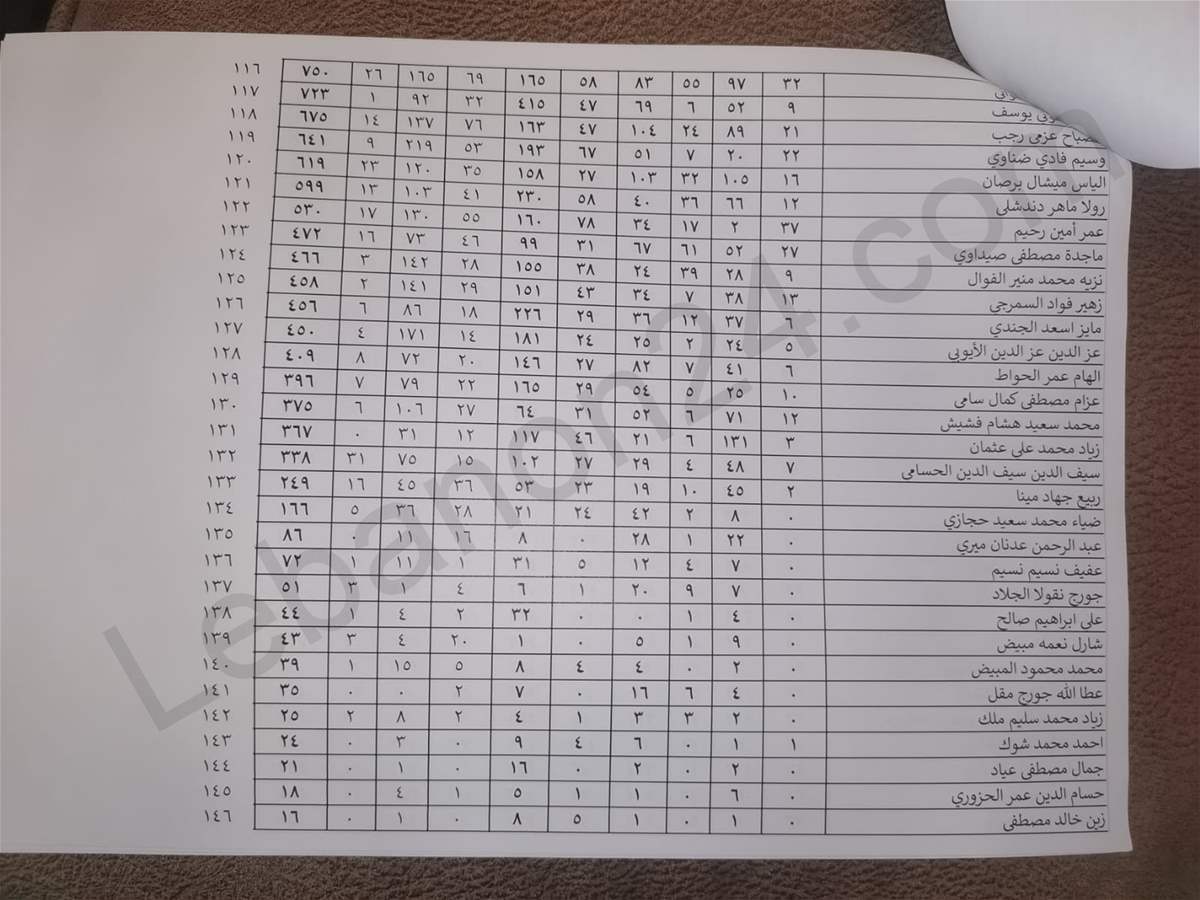 ٣٢ ٩٧ ٥٥ ٨٣ ٥٨ ١٦٥ ٦٩ ١٦٥ ٢٦ ٧٥٠ ١١٦
يوسف ٩ ٥٢ ٦ ٦٩ ٤٧ ٤١٥ ٣٢ ٩٢ ١ ٧٢٣ ١١٧
مصباح عزمي رجب ٢١ ٨٩ ٢٤ ١٠٤ ٤٧ ١٦٣ ٧٦ ١٣٧ ١٤ ٦٧٥ ١١٨
وسيم فادي ضناوي ٢٢ ٢٠ ٧ ٥١ ٦٧ ١٩٣ ٥٣ ٢١٩ ٩ ٦٤١ ١١٩
الياس ميشال برصان ١٦ ١٠٥ ٣٢ ١٠٣ ٢٧ ١٥٨ ٣٥ ١٢٠ ٢٣ ٦١٩ ١٢٠
رولا ماهر دندشلي ١٢ ٦٦ ٣٦ ٤٠ ٥٨ ٢٣٠ ٤١ ١٠٣ ١٣ ٥٩٩ ١٢١
عمر أمين رحيم ٣٧ ٢ ١٧ ٣٤ ٧٨ ١٦٠ ٥٥ ١٣٠ ١٧ ٥٣٠ ١٢٢
ماجدة مصطفى صيداوي ٢٧ ٥٢ ٦١ ٦٧ ٣١ ٩٩ ٤٦ ٧٣ ١٦ ٤٧٢ ١٢٣
نزيه محمد منير الفوال ٩ ٢٨ ٣٩ ٢٤ ٣٨ ١٥٥ ٢٨ ١٤٢ ٣ ٤٦٦ ١٢٤
زهير فواد السمرجي ١٣ ٣٨ ٧ ٣٤ ٤٣ ١٥١ ٢٩ ١٤١ ٢ ٤٥٨ ١٢٥
مايز اسعد الجندي ٦ ٣٧ ١٢ ٣٦ ٢٩ ٢٢٦ ١٨ ٨٦ ٦ ٤٥٦ ١٢٦
عز الدين عز الدين الأيوبي ٥ ٢٤ ٢ ٢٥ ٢٤ ١٨١ ١٤ ١٧١ ٤ ٤٥٠ ١٢٧
الهام عمر الحواط ٦ ٤١ ٧ ٨٢ ٢٧ ١٤٦ ٢٠ ٧٢ ٨ ٤٠٩ ١٢٨
عزام مصطفى كمال سامي ١٠ ٢٥ ٥ ٥٤ ٢٩ ١٦٥ ٢٢ ٧٩ ٧ ٣٩٦ ١٢٩
محمد سعيد هشام فشيش ١٢ ٧١ ٦ ٥٢ ٣١ ٦٤ ٢٧ ١٠٦ ٦ ٣٧٥ ١٣٠
زياد محمد علي عثمان ٣ ١٣١ ٦ ٢١ ٤٦ ١١٧ ١٢ ٣١ ٠ ٣٦٧ ١٣١
سيف الدين سيف الدين الحسامي ٧ ٤٨ ٤ ٢٩ ٢٧ ١٠٢ ١٥ ٧٥ ٣١ ٣٣٨ ١٣٢
ربيع جهاد مينا ٢ ٤٥ ١٠ ١٩ ٢٣ ٥٣ ٣٦ ٤٥ ١٦ ٢٤٩ ١٣٣
ضياء محمد سعيد حجازي ٠ ٨ ٢ ٤٢ ٢٤ ٢١ ٢٨ ٣٦ ٥ ١٦٦ ١٣٤
عبد الرحمن عدنان ميري ٠ ٢٢ ١ ٢٨ ٠ ٨ ١٦ ١١ ٠ ٨٦ ١٣٥
عفيف نسيم نسيم ٠ ٧ ٤ ١٢ ٥ ٣١ ١ ١١ ١ ٧٢ ١٣٦
جورج نقولا الجلاد ٠ ٧ ٩ ٢٠ ١ ٦ ٤ ١ ٣ ٥١ ١٣٧
علي ابراهيم صالح ٠ ٤ ١ ٠ ٠ ٣٢ ٢ ٤ ١ ٤٤ ١٣٨
شارل نعمه مبيض ٠ ٩ ١ ٥ ٠ ١ ٢٠ ٤ ٣ ٤٣ ١٣٩
محمد محمود المبيض ٠ ٢ ٠ ٤ ٤ ٨ ٥ ١٥ ١ ٣٩ ١٤٠
عطا الله جورج مقل ٠ ٤ ٦ ١٦ ٠ ٧ ٢ ٠ ٠ ٣٥ ١٤١
زياد محمد سليم ملك ٠ ٢ ٣ ٣ ١ ٤ ٢ ٨ ٢ ٢٥ ١٤٢
احمد محمد شوك ١ ١ ٠ ٦ ٤ ٩ ٠ ٣ ٠ ٢٤ ١٤٣
جمال مصطفى عياد ٠ ٢ ٠ ٢ ٠ ١٦ ٠ ١ ٠ ٢١ ١٤٤
حسام الدين عمر الحزوري ٠ ٦ ٠ ١ ١ ٥ ١ ٤ ٠ ١٨ ١٤٥
زين خالد مصطفى ٠ ١ ٠ ١ ٥ ٨ ٠ ١ ٠ ١٦ ١٤٦
Lebanon24.com